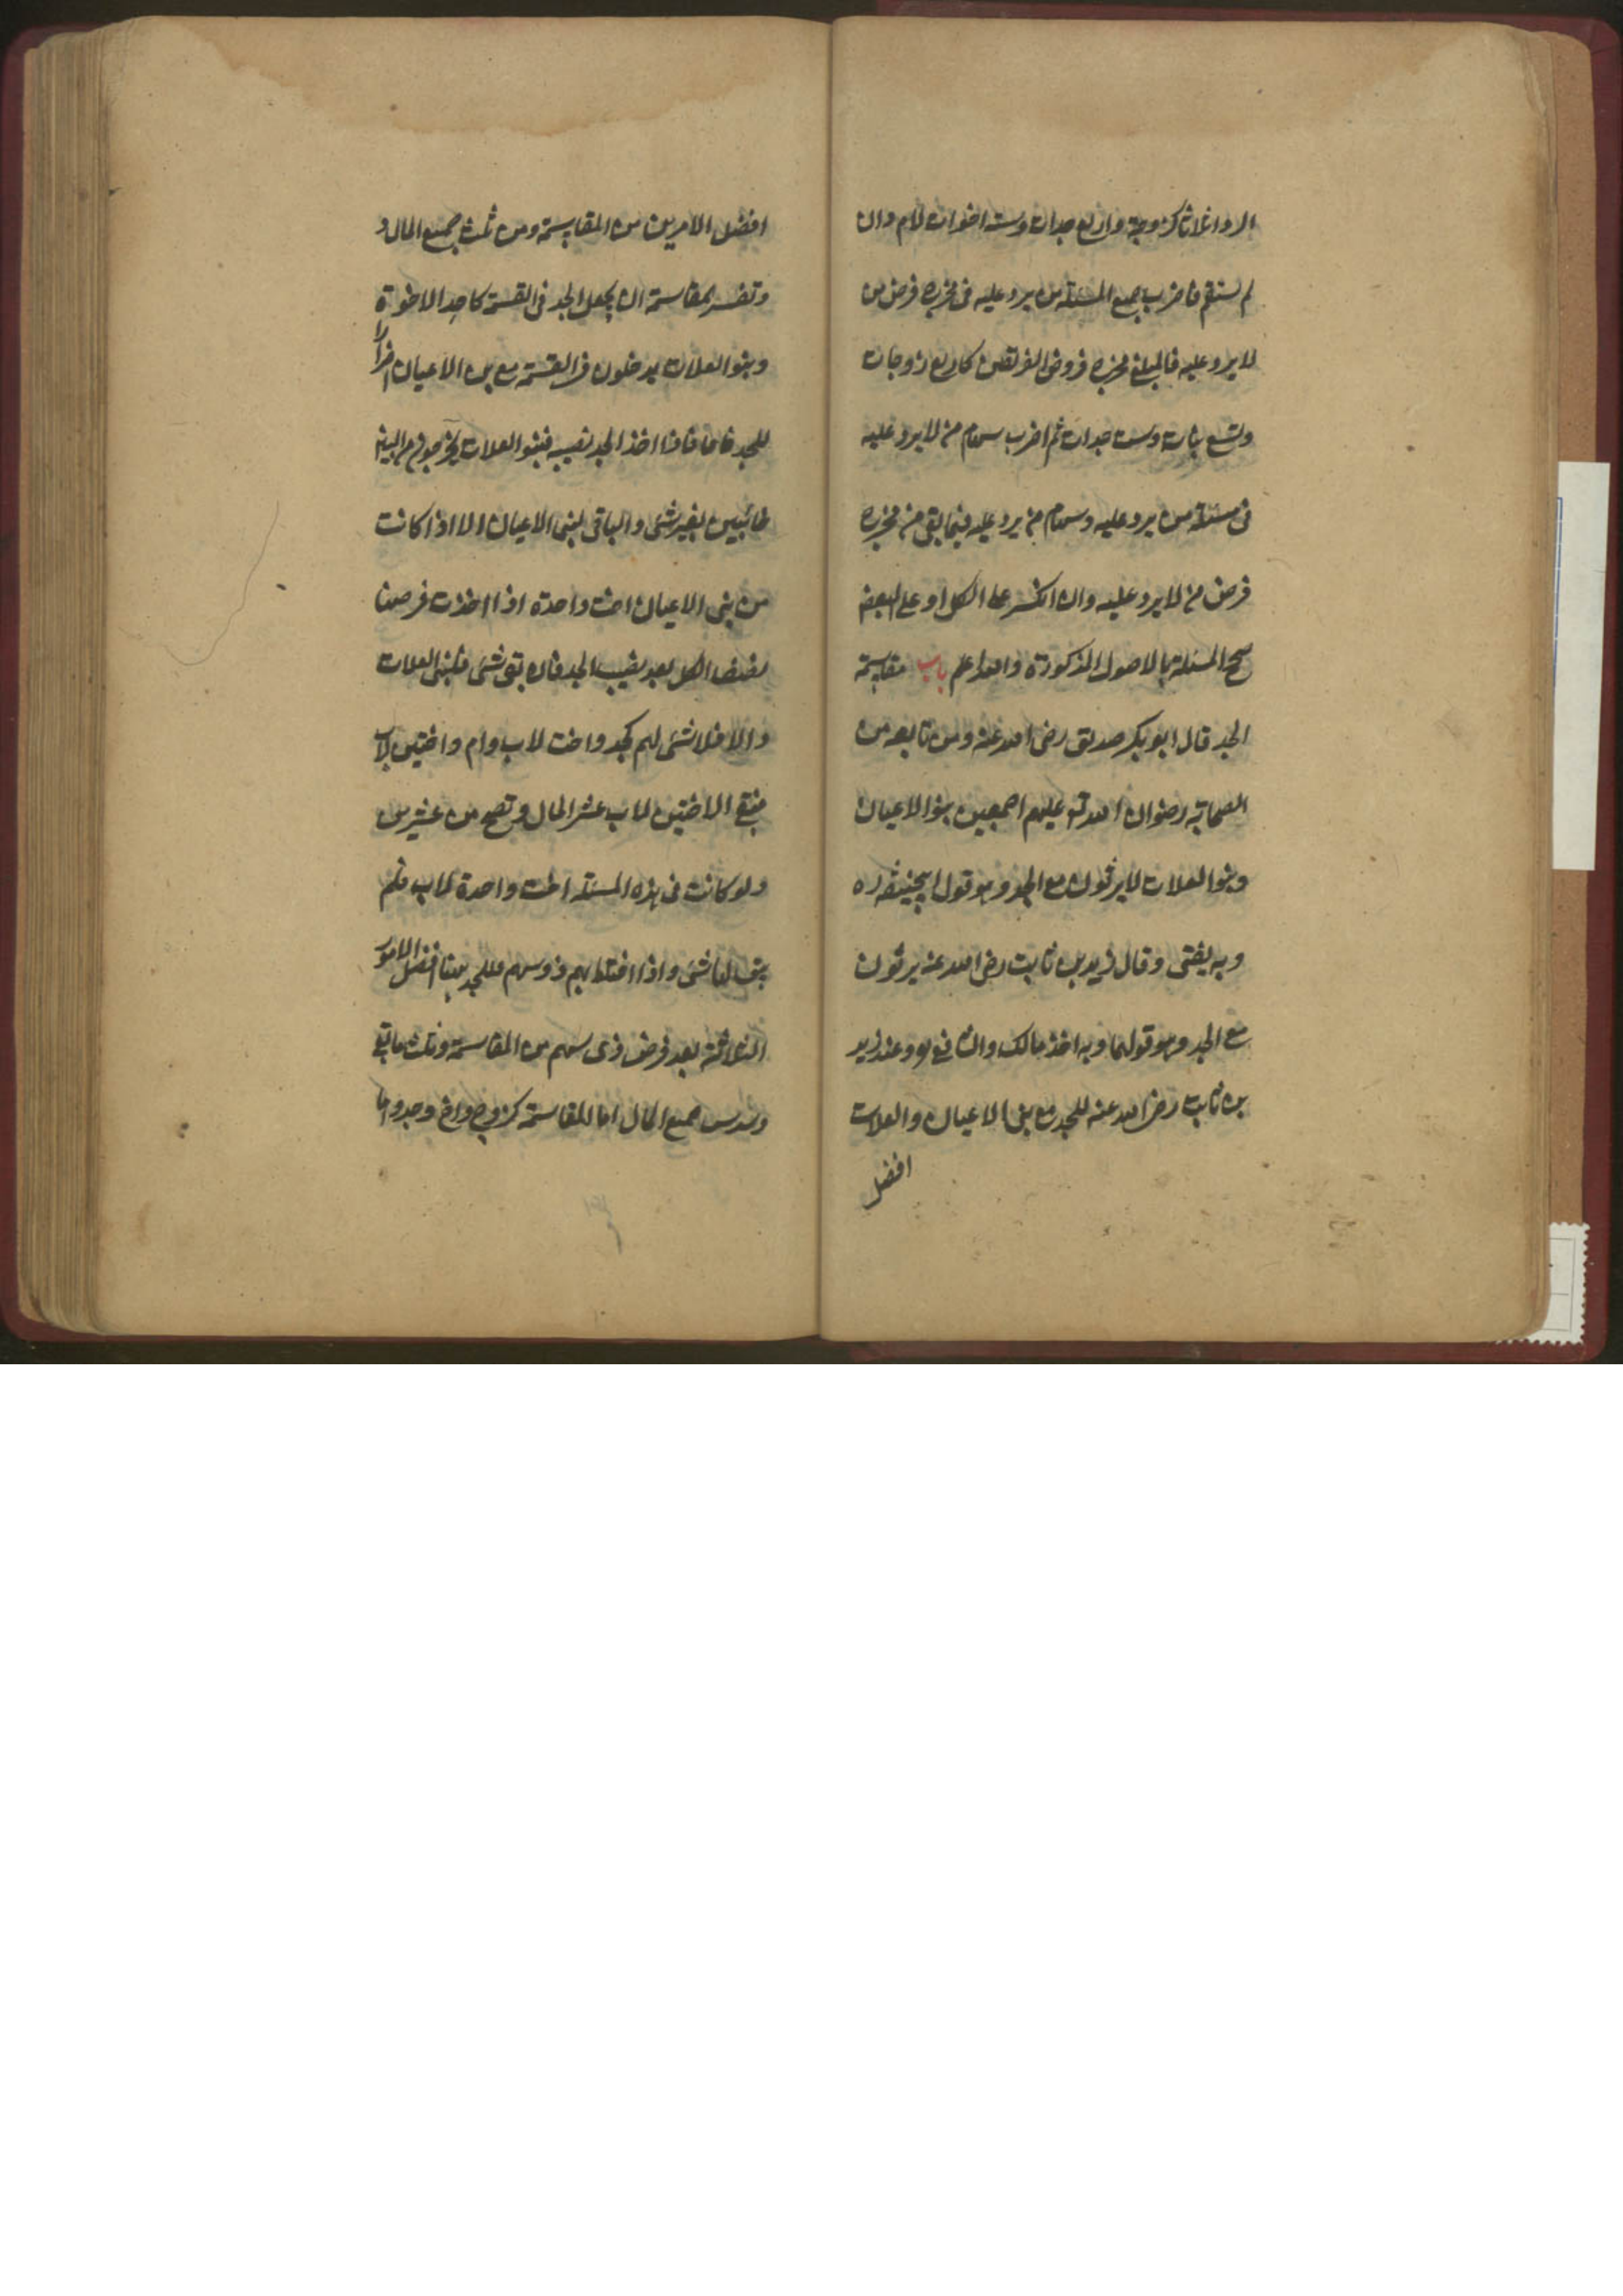 الرد اثلاثا كزوجة واربع جدات وست اخوات لام وان
لم يستقم فاضرب جميع المسئلة من يرد عليه فى مخرج فرض من
لا يرد عليه فالمبلغ مخرج فروض الفريقين كاربع زوجات
وتسع بنات وست جدات ثم اضرب سهام من لا يرد عليه
فى مسئلة من يرد عليه وسهام من يرد عليه فيما بقى من مخرج
فرض من لا يرد عليه وان انكسر على الكل او على البعض
صح المسئلة بالاصول المذكورة والله اعلم باب مقاسمة
الجد قال ابو بكر صديق رضى الله عنه ومن تابعه من
الصحابة رضوان الله تع عليهم اجمعين بنو الاعيان
وبنو العلات لا يرثون مع الجد وهو قول ابيحنيفه ره
وبه يفتى وقال زيد بن ثابت رضى الله عنه يرثون
مع الجد وهو قولهما وبه اخذ مالك والشافعى وعند زيد
بن ثابت رضى الله عنه للجد مع بنى الاعيان والعلات
افضل
افضل الامرين من المقاسمة ومن ثلث جميع المال و
وتفسير لمقاسمة ان يجعل الجد فى القسمة كاحد الاخوة
وبنو العلات يدخلون فى القسمة مع بنى الاعيان اضرارا
للجد فاذا اخذ الجد نصيبه فبنو العلات يخرجون من البين
خائبين بغير شئ والباقى لبنى الاعيان الا اذا كانت
من بنى الاعيان اخت واحدة اذا اخذت فرضها
نصف الكل بعد نصيب الجد فان بقى شئ فلبنى العلات
والا فلا شئ لهم كجد واخت لاب وام واختين لاب
فبقى الاختين لاب عشر المال وتصح من عشرين
ولو كانت فى هذه المسئلة اخت واحدة لاب فلم
يبق لها شئ واذا اختلط بهم ذو سهم فللجد هنا افضل الامور
الثلاثة بعد فرض ذى سهم من المقاسمة وثلث ما بقى
وسدس جميع المال اما للمقاسمة كزوج واخ وجد واما